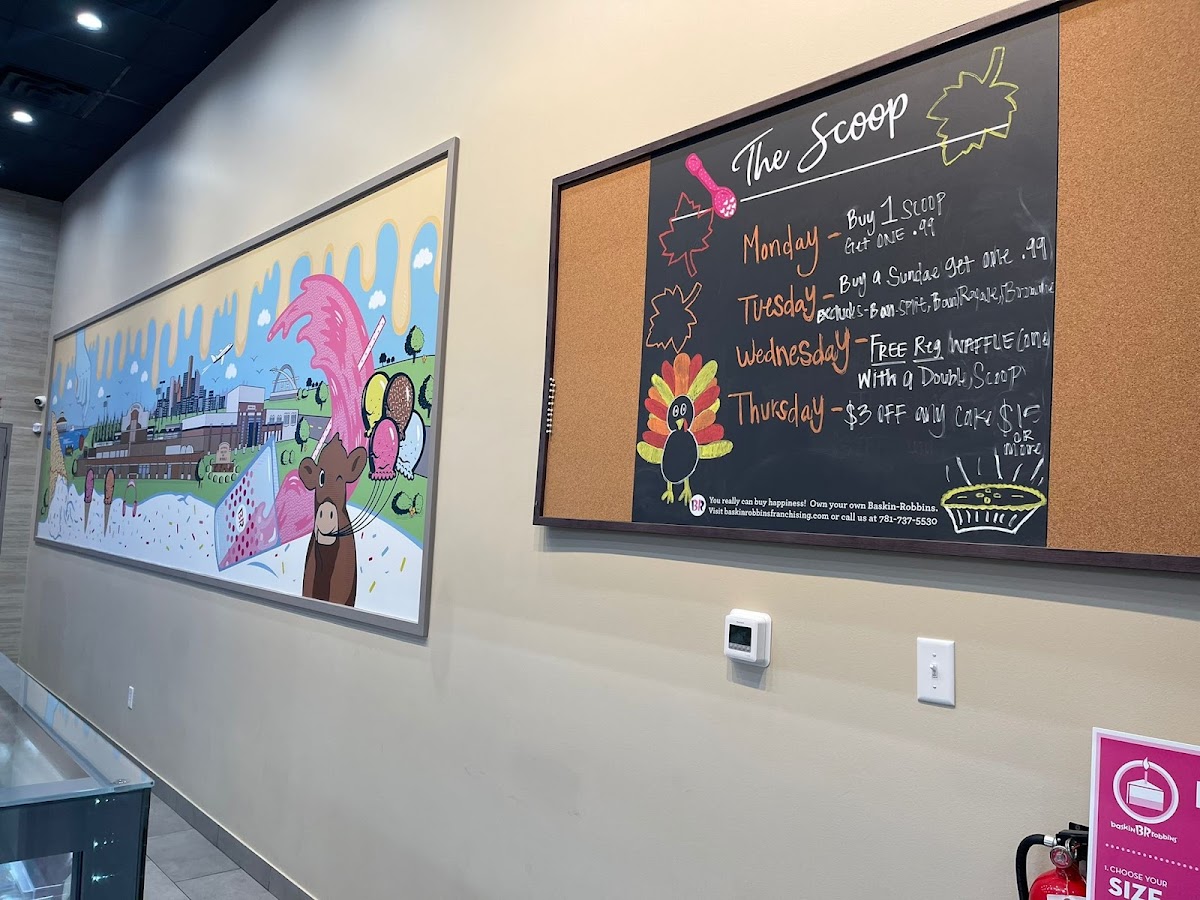 The Scoop
Monday - Buy 1 SCOOP
Get ONE .99
Tuesday - Buy a Sundae get one .99
Excludes - Ban-split, Ban Royale, Brownie
Wednesday - FREE Reg WAFFLE Cone
With a Double Scoop
Thursday - $3 OFF any cake $15
OR
More
You really can buy happiness! Own your own Baskin-Robbins.
BR
Visit baskinrobbinsfranchising.com or call us at 781-737-5530
baskin BR robbins
1. CHOOSE YOUR
SIZE